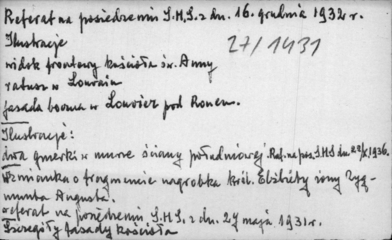 Referat na posiedzeniu S.H.S. z dn. 16. grudnia 1932 r.
Ilustracje
27/1931
widok frontowy kościoła św. Anny
ratusz w Louvain
fasada boczna w Louvier pod Rouen.
Ilustracje:
dwa gmerki w murze ściany południowej. Ref. na pos. S.H.S dn. 22/X 1936.
Wzmianka o fragmencie nagrobka król. Elżbiety żony Zyg-
munta Augusta.
referat na posiedzeniu S.H.S. z dn. 27 maja 1931 r.
Szczegóły fasady kościoła